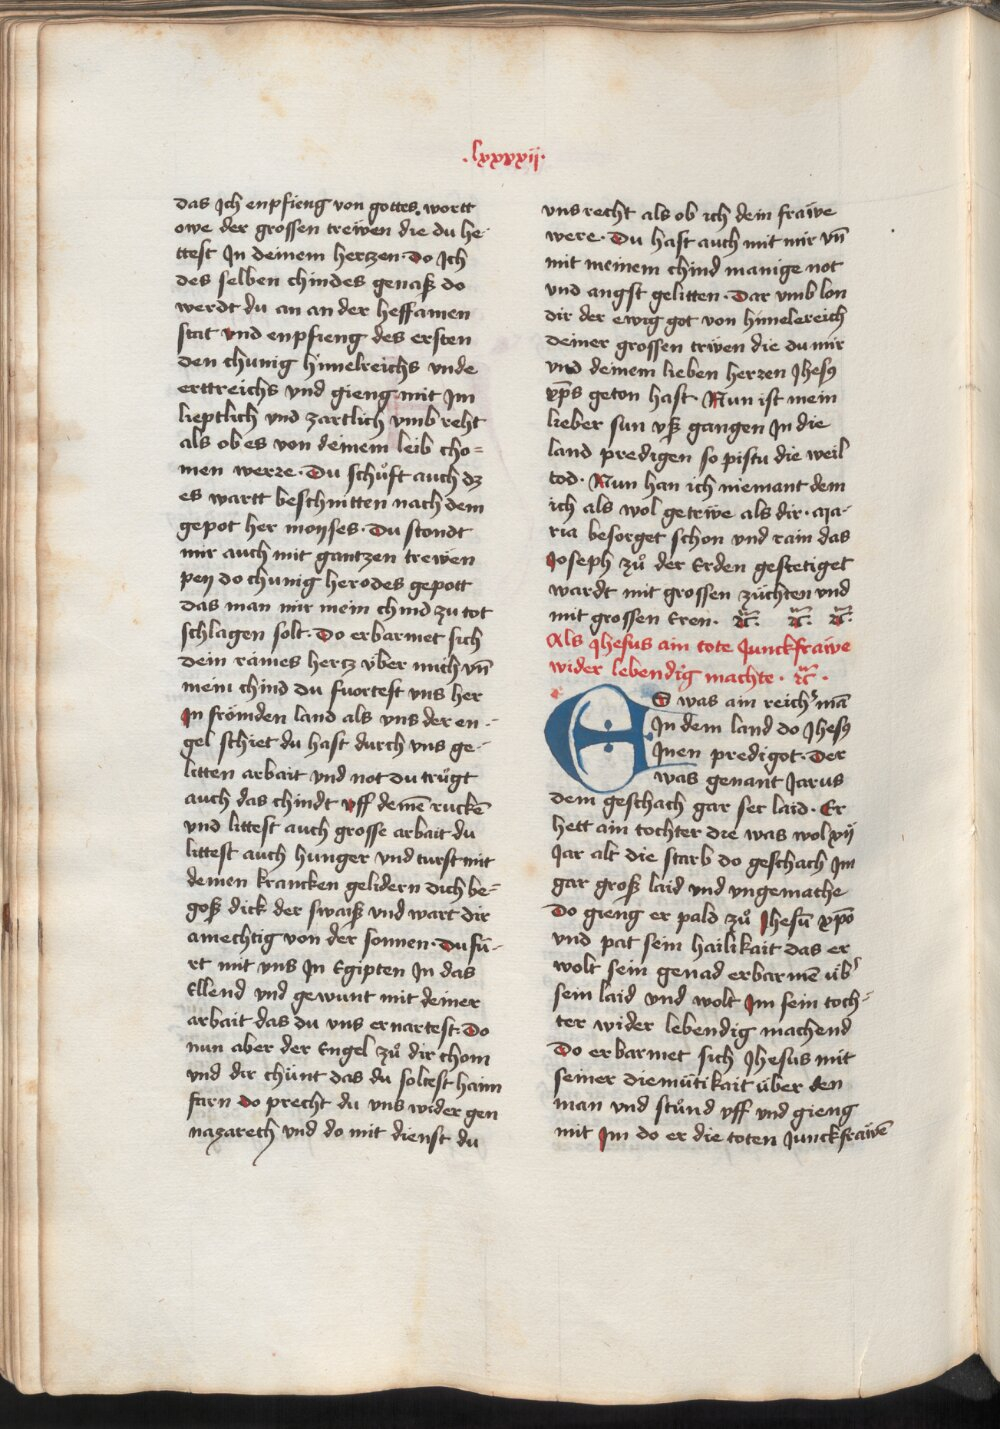 .lxxxxij.
das Jch enpfieng von gottes wortt
owe der grossen trewen die du he-
ttest Jn deinem hertzen. Do Jch
des selben chindes genaß do
werdt du an an der heffamen
stat vnd enpfieng des ersten
den chunig himelreichs vnde
erttreichs vnd gieng mit Jm
lieptlich vnd zartlich vmb reht
als ob es von deinem leib cho=
men werre. Du schůft auch dz
es wartt beschnitten nach dem
gepot her moyses. Du stondt
mir auch mit gantzen trewen
pey do chunig herodes gepott
das man mir mein chind zu tot
schlagen solt. Do erbarmet sich
dein raines hertz vber mich vn̄
mein chind du fuortest vns her
Jn frömden land als vns der en-
gel schiet du hast durch vns ge-
litten arbait vnd not du trůgt
auch das chindt vff demē ruckē
vnd littest auch grosse arbait du
littest auch hunger vnd turst mit
deinen krancken gelidern dich be=
goß dick der swaiß vnd wart dir
amechtig von der sonnen. Du fů-
rt mit vns Jn Egipten Jn das
Ellend vnd gewunt mit deiner
arbait das du vns ernartest. Do
nun aber der Engel zů dir chom
vnd dir chünt das du soltest haim
farn do precht du vns wider gen
nazareth vnd do mit dienst du
vns recht als ob ich dein frawe
were. Du hast auch mit mir vn̄
mit meinem chind manige not
vnd angst gelitten. Dar vmb lon
dir der ewig got von himelereich
deiner grossen triwen die du mir
vnd deinem lieben herzen Jhesꝯ
xp̄s geton hast. Nun ist mein
lieber sun vß gangen Jn die
land predigen so pistu die weil
tod. Nun han ich niemant dem
ich als wol getriwe als dir. Ma-
ria besorget schon vnd rain das
Joseph zů der Erden gestetiget
wardt mit grossen züchten vnd
mit grossen Eren. ꝛc. ꝛc. ꝛc.
Als Jhesus ain tote Junckfrawe
wider lebendig machte. ꝛc.
ES was ain reichʳ mā
Jn dem land do Jhesꝯ
Jnen predigot. Der
was genant Jarus
dem geschach gar ser laid. Er
hett ain tochter die was wol xij
Jar alt die starb do geschach Jm
gar groß laid vnd vngemache
Do gieng er pald zů Jhesū xp̄o
vnd pat sein hailikait das er
wolt sein genad erbarmē übʳ
sein laid vnd wolt Jm sein toch-
ter wider lebendig machend
Do erbarmet sich Jhesus mit
seiner diemütikait über den
man vnd stůnd vff vnd gieng
mit Jm do er die toten Junckfrawē